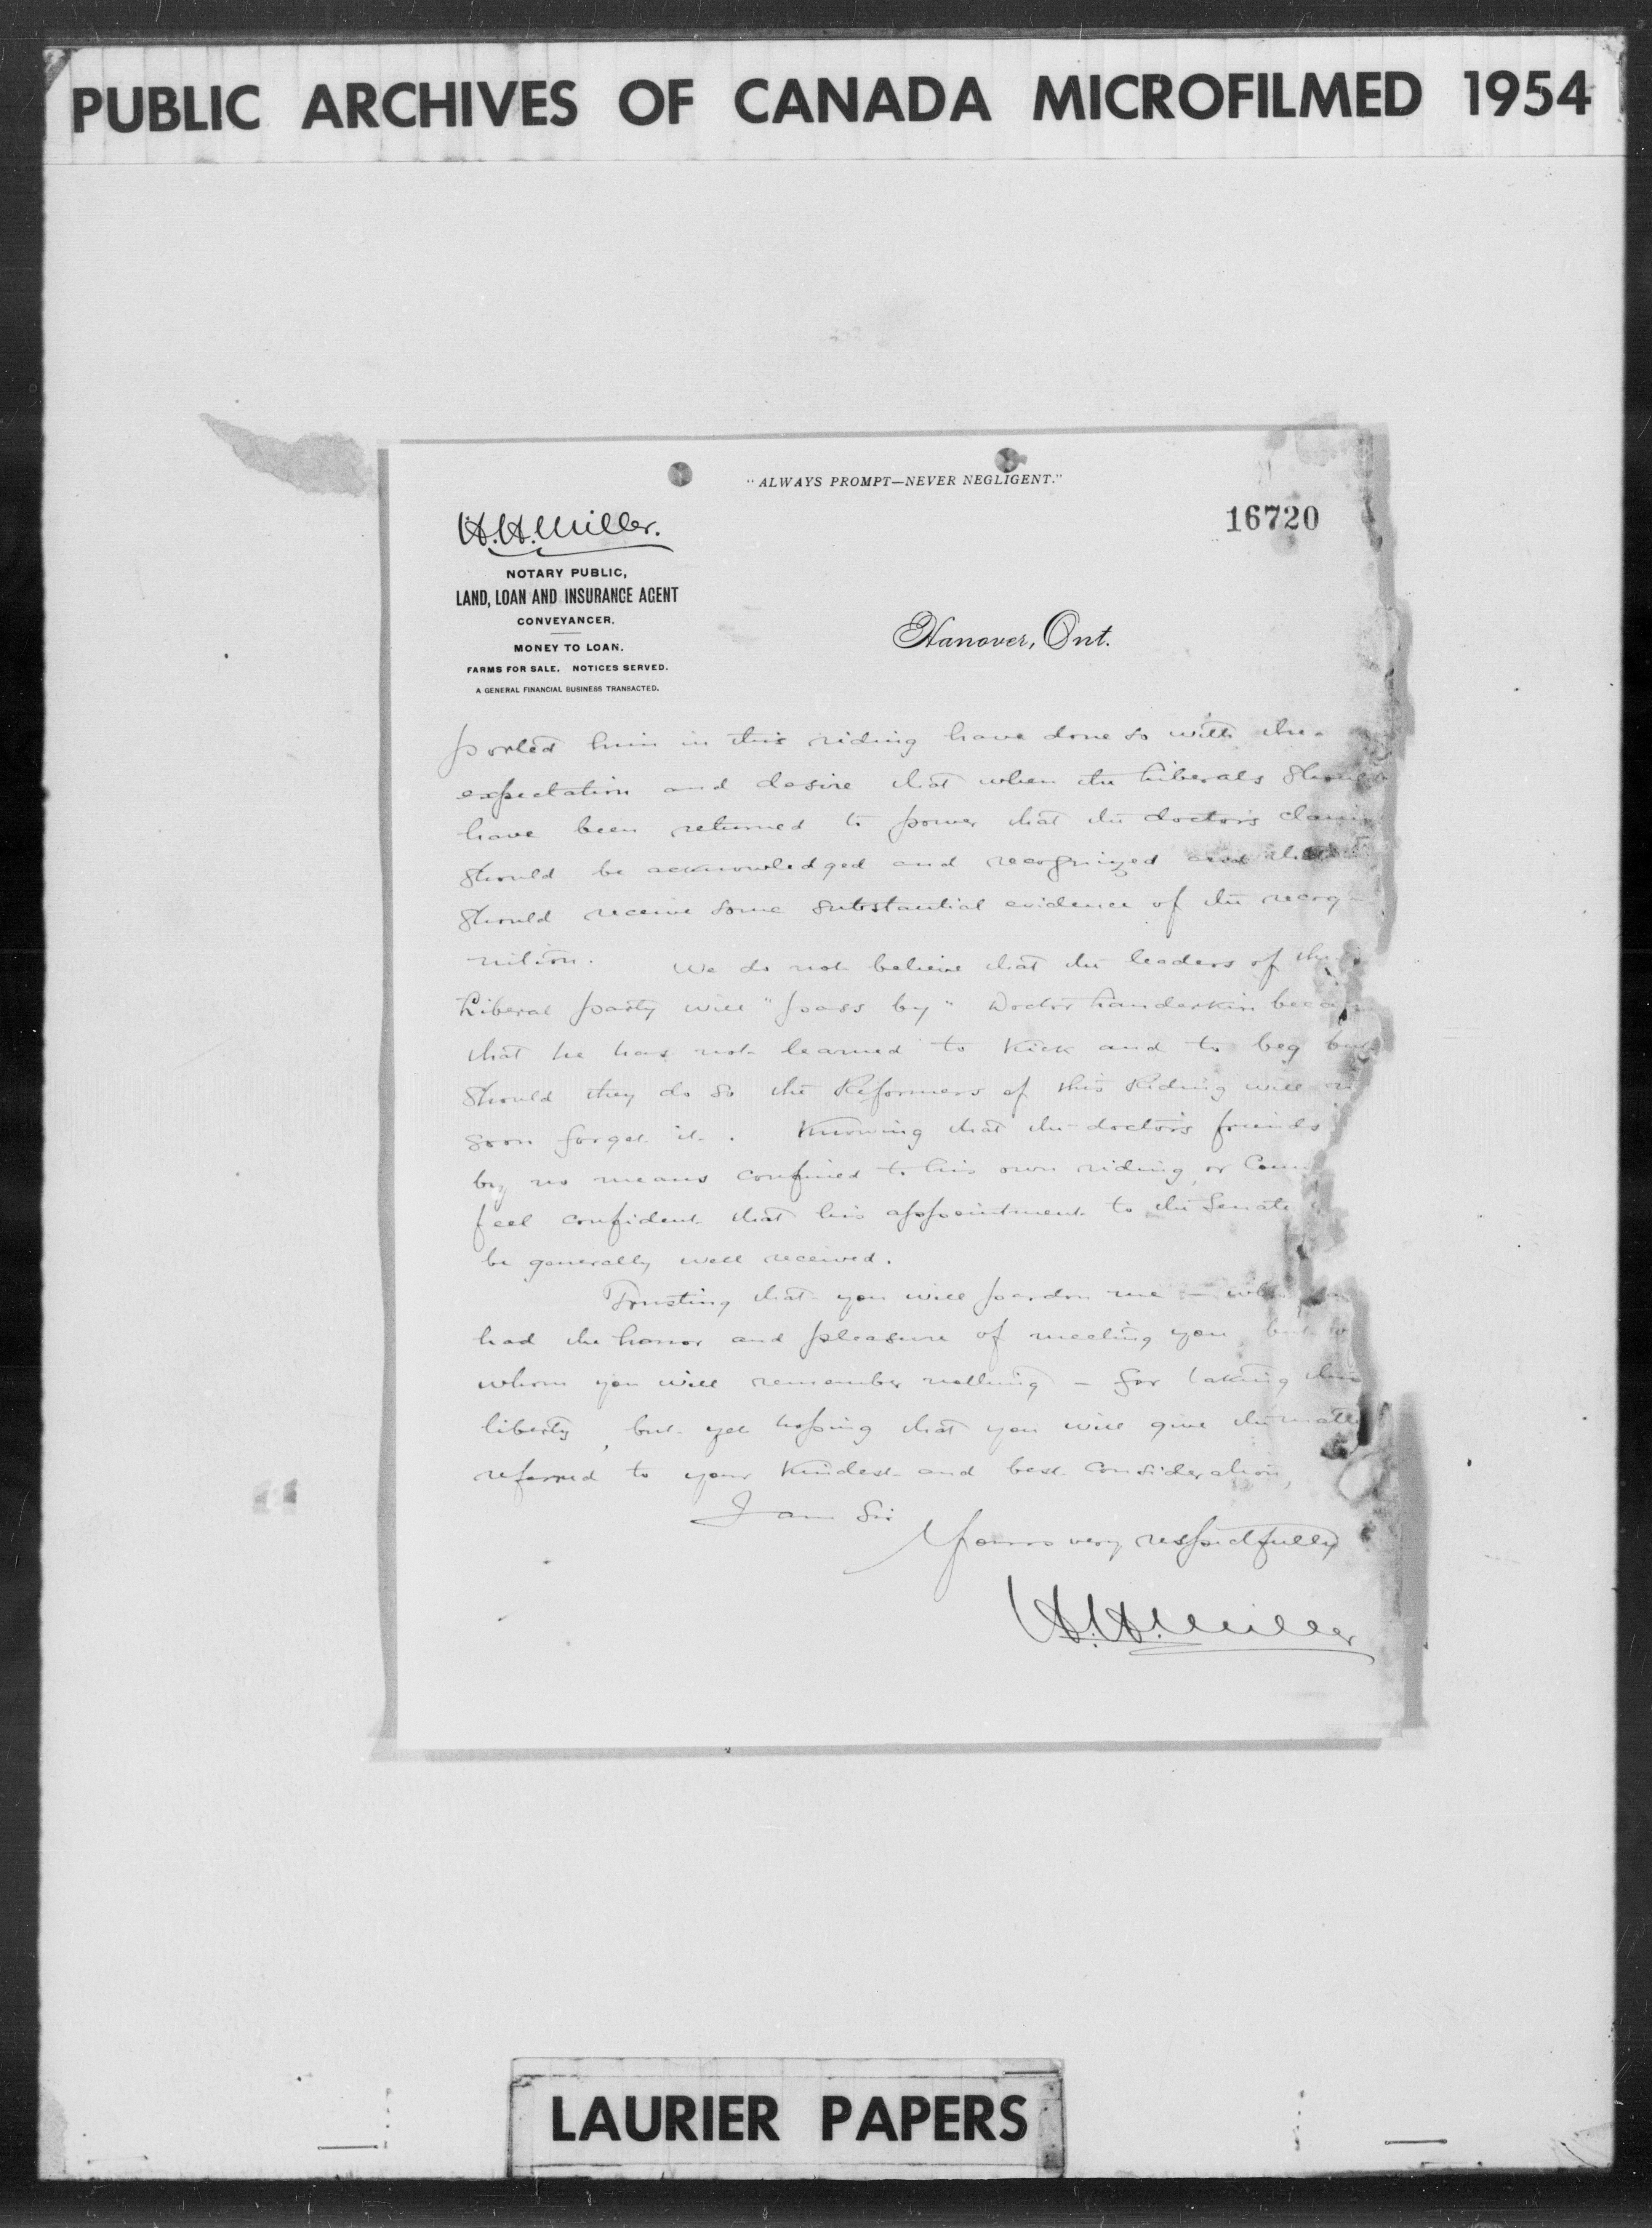 PUBLIC ARCHIVES OF CANADA MICROFILMED 1954
"ALWAYS PROMPT—NEVER NEGLIGENT."
16720
H.H. Miller.
NOTARY PUBLIC,
LAND, LOAN AND INSURANCE AGENT
CONVEYANCER.
MONEY TO LOAN.
FARMS FOR SALE. NOTICES SERVED.
A GENERAL FINANCIAL BUSINESS TRANSACTED.
Hanover, Ont.
ported him in this riding have done so with the
expectation and desire that when the Liberals should
have been returned to power that the doctor's claims
should be acknowledged and recognized and
should receive some substantial evidence of the recog-
nition. We do not believe that the leaders of the
Liberal party will "pass by" Doctor Landerkin
that he has not learned to kick and to beg but
should they do so the Reformers of this Riding will
soon forget it. Knowing that the doctor's friends
by no means confined to his own riding, or
feel confident that his appointment to the Senate
be generally well received.
Trusting that you will pardon me —
had the honor and pleasure of meeting you, but
whom you will remember nothing — for taking this
liberty, but yet hoping that you will give the matter
referred to your kindest and best consideration,
I am Sir
Yours very respectfully
H.H. Miller
LAURIER PAPERS